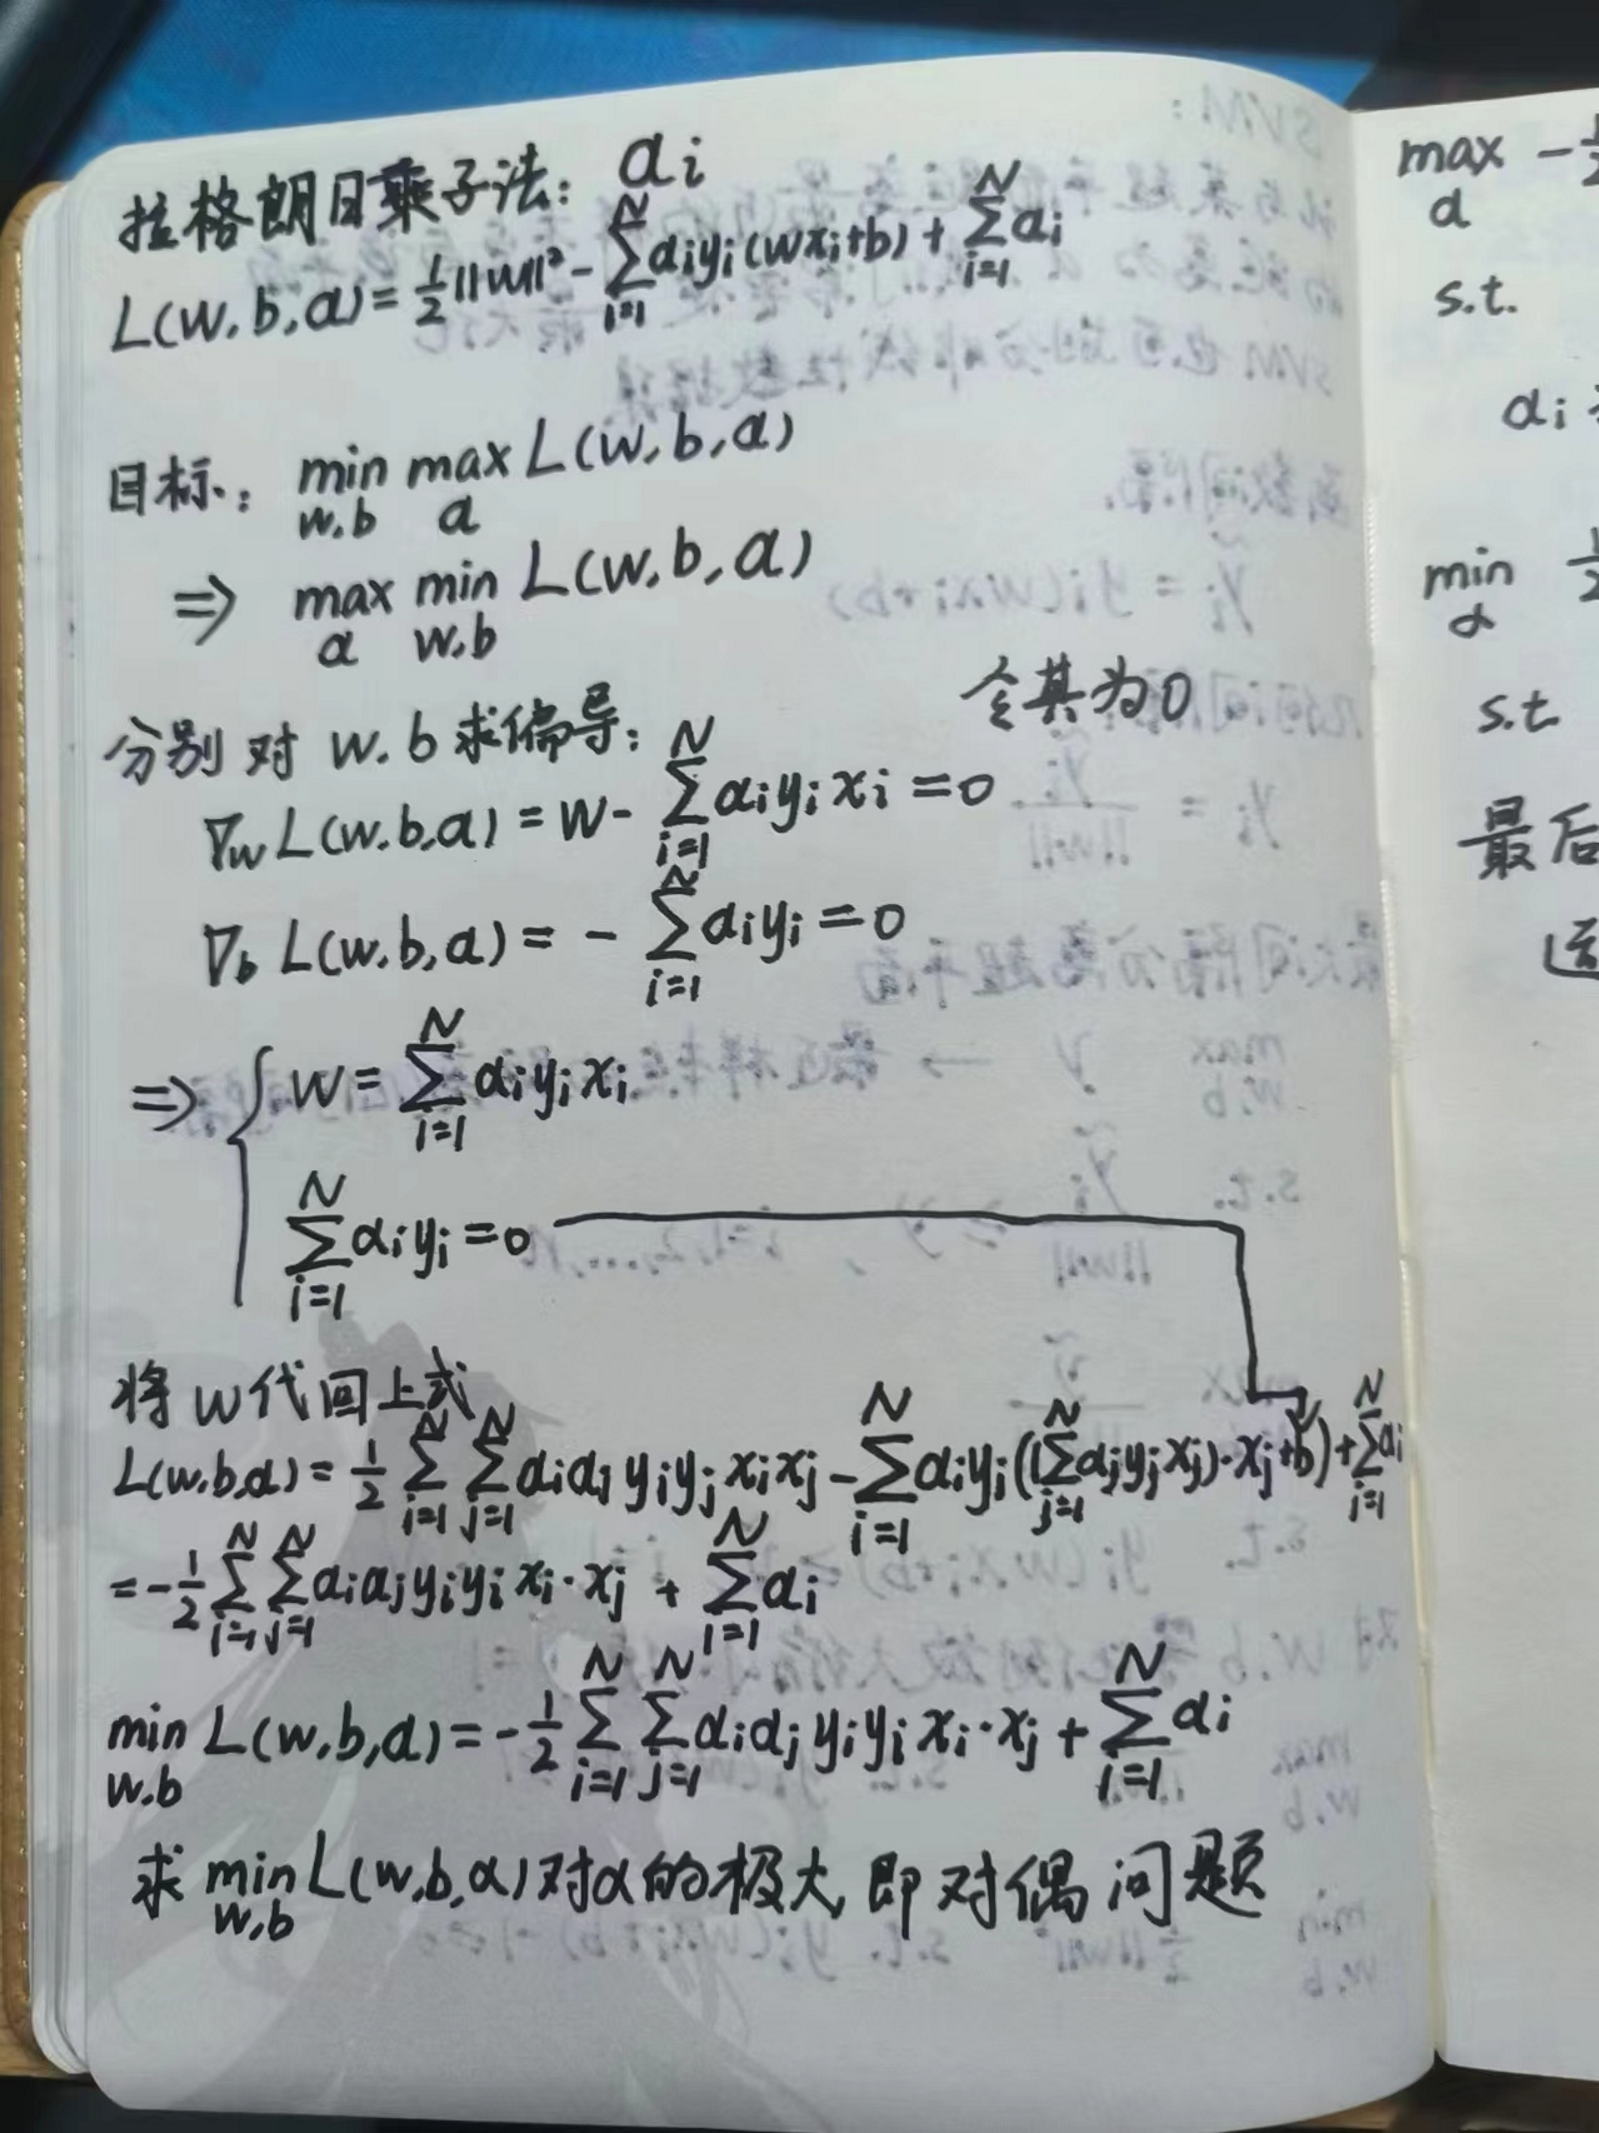 拉格朗日乘子法： αi
L(w.b,α)=½||w||²-∑_{i=1}^{N}αiyi(wxi+b)+∑_{i=1}^{N}αi
目标： min_{w.b} max_{α} L(w,b,α)
⇒ max_{α} min_{w.b} L(w.b,α)
分别对 w.b求偏导： 令其为0
∇wL(w.b,α)=w-∑_{i=1}^{N}αiyixi=0
∇b L(w.b,α)=-∑_{i=1}^{N}αiyi=0
⇒ { w=∑_{i=1}^{N}αiyixi
∑_{i=1}^{N}αiyi=0
将w代回上式
L(w.b,α)=½∑_{i=1}^{N}∑_{j=1}^{N}αiαjyiyjxixj-∑_{i=1}^{N}αiyi((∑_{j=1}^{N}αjyjxj)·xj+b)+∑_{i=1}^{N}αi
=-½∑_{i=1}^{N}∑_{j=1}^{N}αiαjyiyixi·xj+∑_{i=1}^{N}αi
min_{w.b} L(w,b,α)=-½∑_{i=1}^{N}∑_{j=1}^{N}αiαjyiyixi·xj+∑_{i=1}^{N}αi
求min_{w,b}L(w,b,α)对α的极大,即对偶问题
max_{α} -½
s.t.
αi
min_{α} ½
s.t.
最后